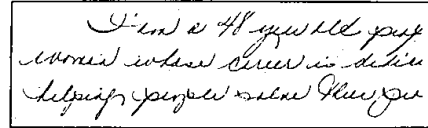 I am a 48 year old prof
woman whose career is devo
helping people solve their pro